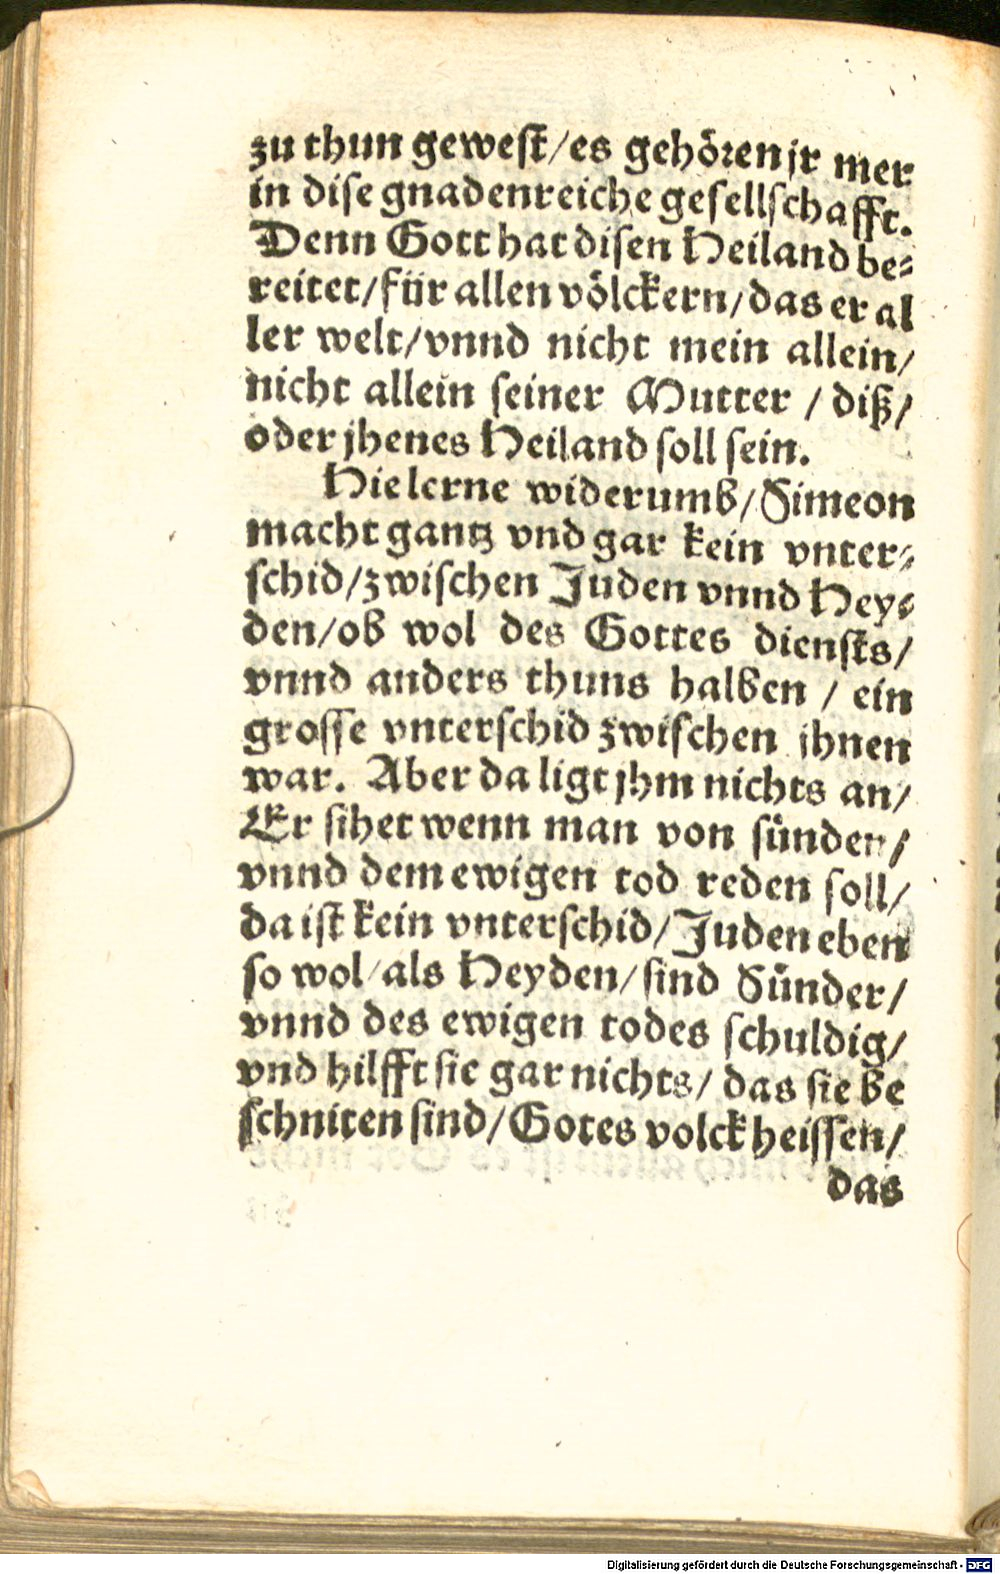 zu thun gewest/es gehören jr mer
in dise gnadenreiche gesellschafft.
Denn Gott hat disen Heiland be-
reitet/für allen völckern/das er al
ler welt/vnnd nicht mein allein/
nicht allein seiner Mutter / diß/
oder jhenes Heiland soll sein.
Hie lerne widerumb/Simeon
macht gantz vnd gar kein vnter-
schid/zwischen Juden vnnd Hey-
den/ob wol des Gottes diensts/
vnnd anders thuns halben / ein
grosse vnterschid zwischen jhnen
war. Aber da ligt jhm nichts an/
Er sihet wenn man von sünden/
vnnd dem ewigen tod reden soll/
da ist kein vnterschid/Juden eben
so wol/als Heyden/sind Sünder/
vnnd des ewigen todes schuldig/
vnd hilfft sie gar nichts/ das sie be
schniten sind/Gotes volck heissen/
das
Digitalisierung gefördert durch die Deutsche Forschungsgemeinschaft - DFG